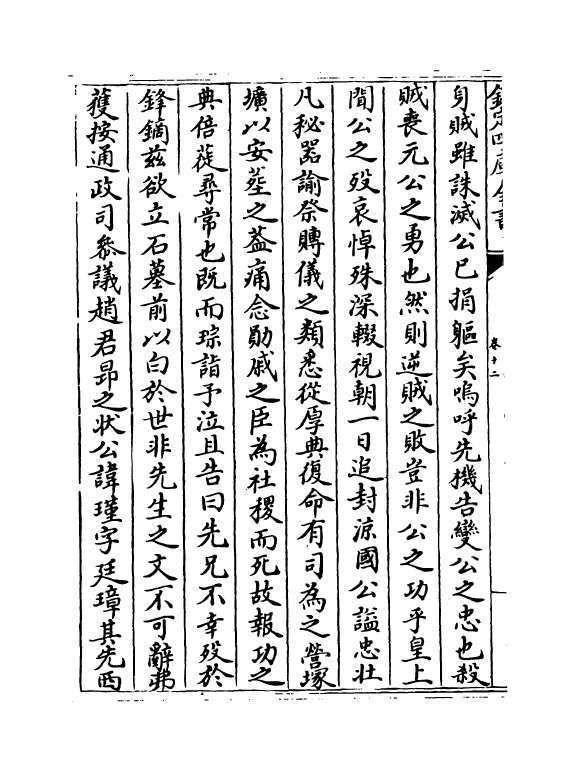 欽定四庫全書
卷十二
身賊雖誅滅公已捐軀矣嗚呼先機告變公之忠也殺
賊喪元公之勇也然則逆賊之敗豈非公之功乎皇上
聞公之歿哀悼殊深輟視朝一日追封涼國公諡忠壯
凡秘器諭祭賻儀之類悉從厚典復命有司為之營塚
壙以安塟之葢痛念勛戚之臣為社稷而死故報功之
典倍蓰尋常也既而琮詣予泣且告曰先兄不幸歿於
鋒鏑茲欲立石墓前以白於世非先生之文不可辭弗
獲按通政司叅議趙君昂之状公諱瑾字廷璋其先西